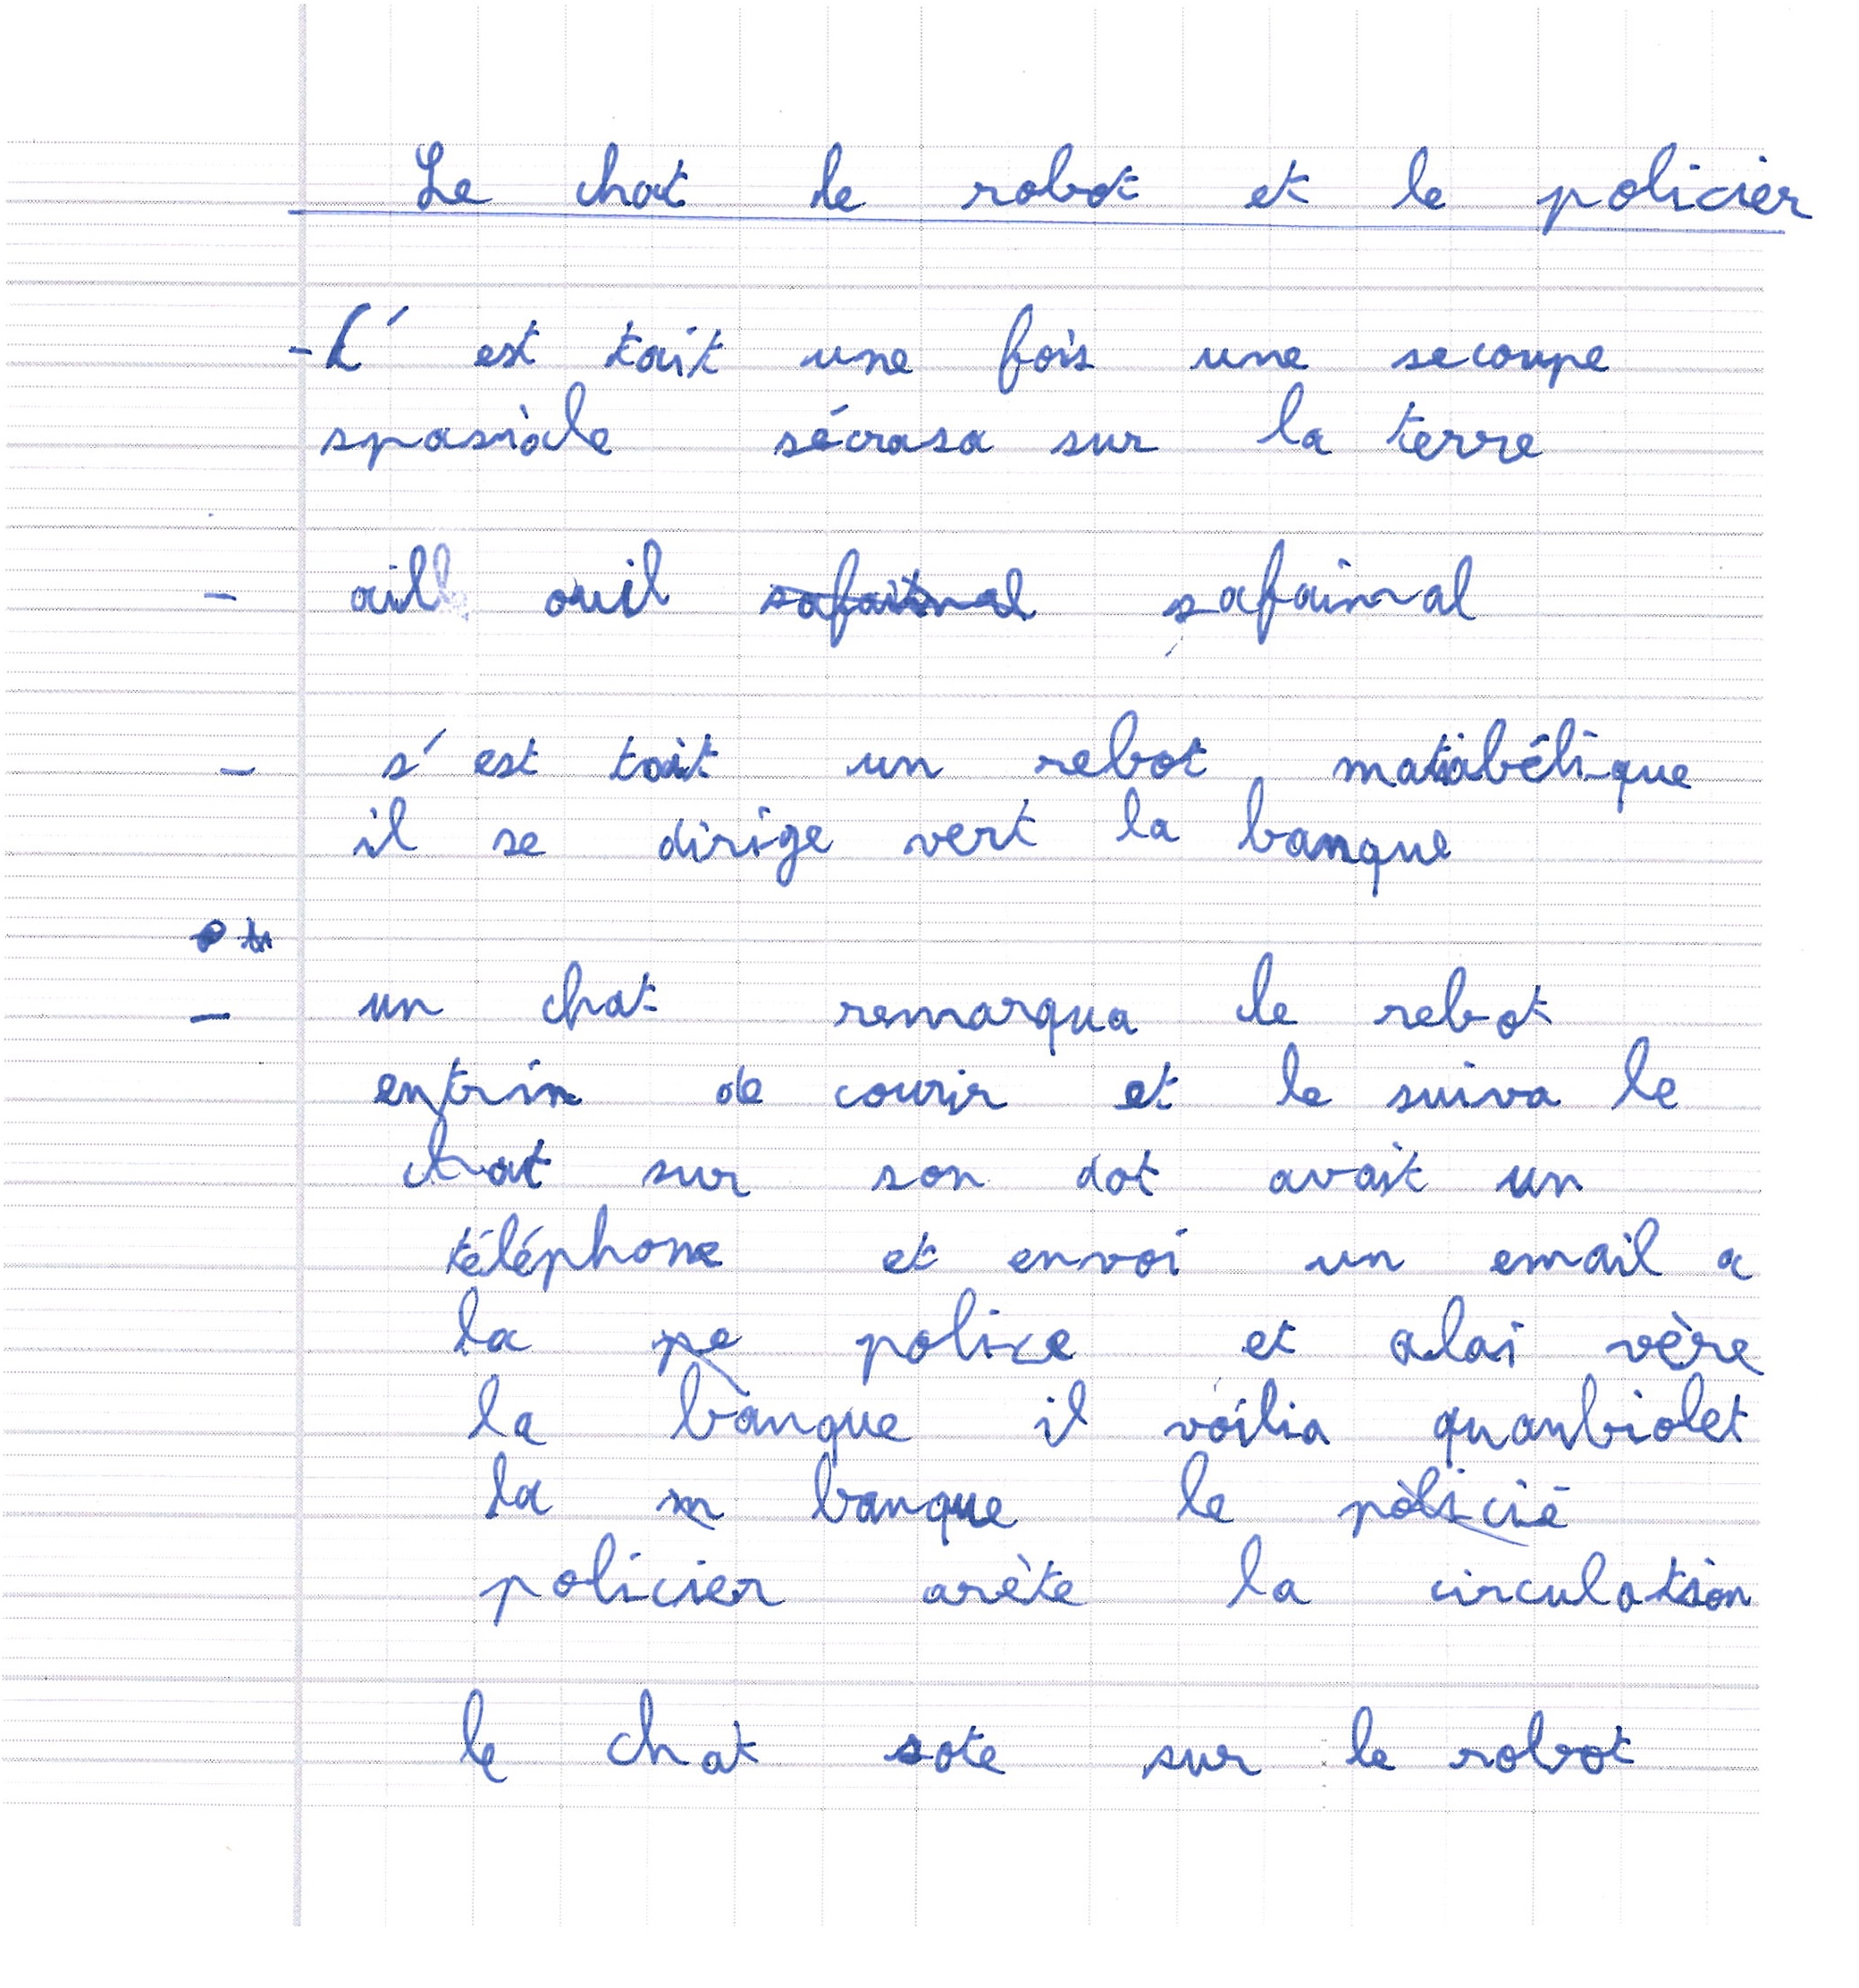 Le chat le robot et le policier
- C' est tait une fois une secoupe
spasiale sécrasa sur la terre
- ail ouil safaimal safaimal
- s' est tait un rebot matiabélique
il se dirige vert la banque
- un chat remarqua le rebot
entrin de courir et le suiva le
chat sur son dot avait un
téléphone et envoi un email a
la pe police et alai vère
la banque il voilia quanbiolet
la m banque le policié
policier arète la circulation
le chat sote sur le robot